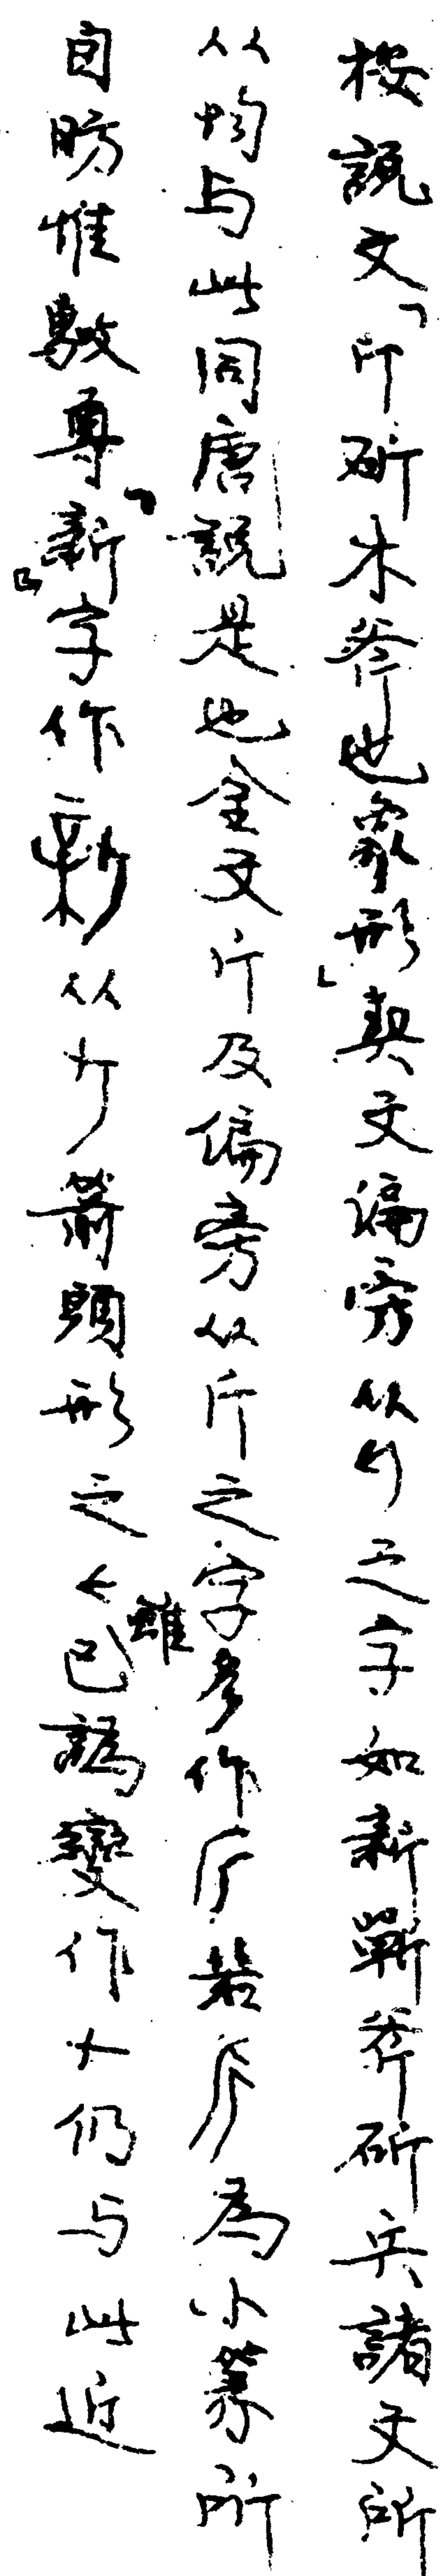 按說文「斤斫木斧也象形」契文偏旁从之字如新蘄斧斫兵諸文所
从均与此同唐說是也金文斤及偏旁从斤之字多作若為小篆所
自昉惟㪤尊「新」字作从箭頭形之雖已譌變作仍与此近